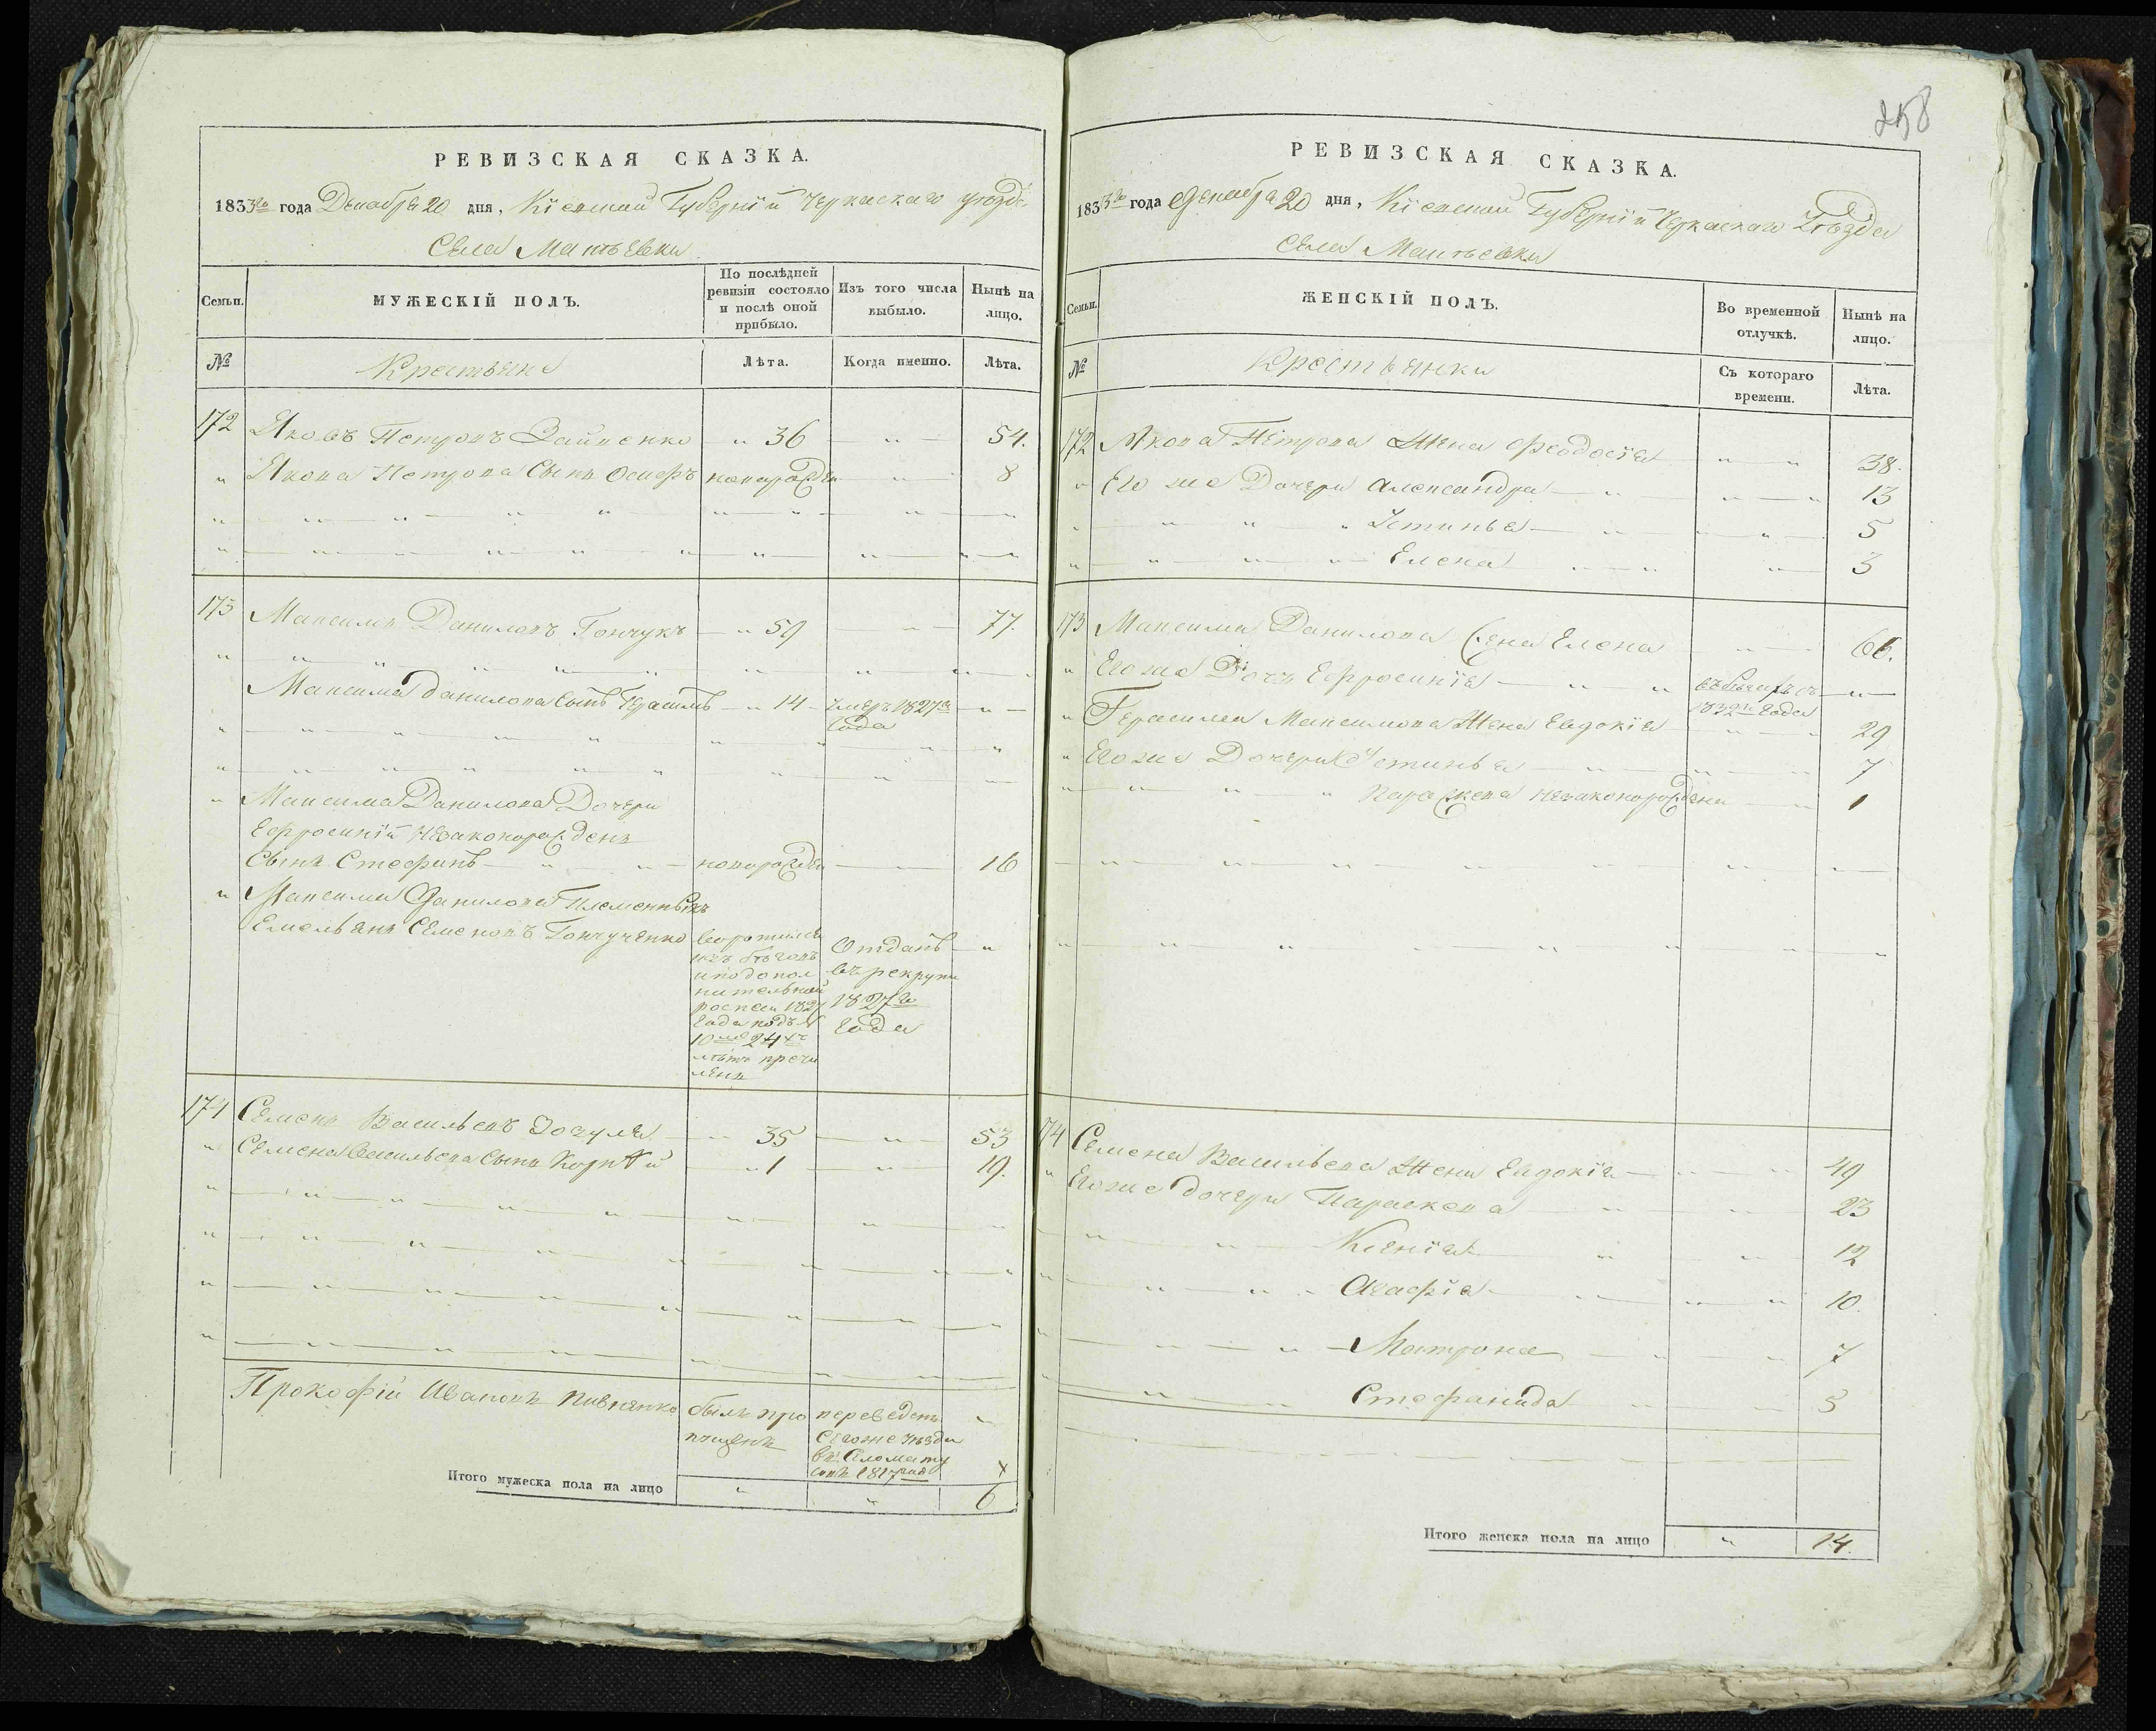 РЕВИЗСКАЯ СКАЗКА.
1833го года Декабря 20 дня, Кіевской Губерніи Черкаскаго уѣзда
Села Мантѣевки
Семьи. МУЖЕСКІЙ ПОЛЪ. По послѣдней ревизіи состояло и послѣ оной прибыло. Изъ того числа выбыло. Нынѣ на лицо.
№ Крестьяне Лѣта. Когда именно. Лѣта.
172 Яковъ Петровъ Зайченко " 36 — " — 54.
" Якова Петрова Сынъ Осифъ новорожден — " — 8
173 Максимъ Даниловъ Гончукъ — " 59 — " — 77.
Максима Данилова Сынъ Герасимъ — " 14 — умеръ 1827го — " —
года
" Максима Данилова Дочери
Ефросиніи незаконорожденъ
Сынъ Стефанъ — " — " — новорожден — 16
" Максима Данилова Племенникъ
Емельянъ Семеновъ Гончученко
воротился
изъ бѣговъ
и подопол
нительной
роспси 1827
года подъ №
10мъ 24хъ
лѣтъ пречи
ленъ
Отданъ "
въ рекруты
1827го
года
174 Семенъ Васильевъ Зозуля — " 35 — " — 53
" Семена Васильева Сынъ Корнѣй — " 1 — " — 19.
Прокофій Ивановъ Пивненко
былъ про
пущенъ
переведенъ "
сегоже уѣзда
х
Итого мужеска пола на лицо " " 6
258
РЕВИЗСКАЯ СКАЗКА.
1833го года Декабря 20 дня, Кіевской Губерніи Черкаскаго Уѣзда
Села Мантѣевки
Семьи. ЖЕНСКІЙ ПОЛЪ. Во временной отлучкѣ. Нынѣ на лицо.
№ Крестьянки Съ котораго времени. Лѣта.
172 Якова Петрова Жена Феодосія — " " 38.
" Его же Дочери Александра — " — " 13
" — " " — " Устинья — " — " — 5
" — " — " — Елена — " " — 3
173 Максима Данилова Жена Елена — " — 66.
" Его же Дочь Ефросинія — " " въ бѣгахъ съ — " —
1832го года
" Герасима Максимова Жена Евдокія — " — 29
" Его же Дочери Устинья — " — 7
" — " — " Параскева незаконорождена — " 1
174 Семена Васильева Жена Евдокія — " — " 49
" Его же дочери Параскева — " — " 23
" — " — Ксенія — " — " 12
" — " — " Агафія — " — " 10.
" — — " — Матрона — " — " 7
— " — Стефанида — " — " 3
Итого женска пола на лицо " 14.